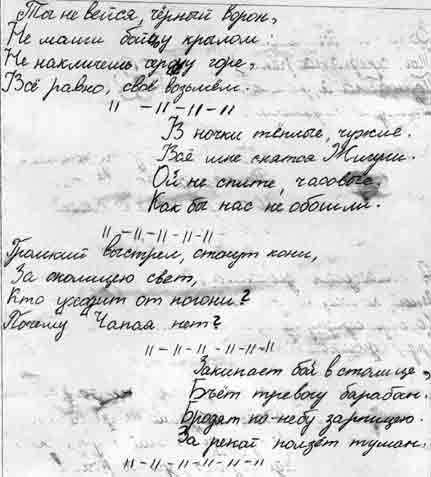 Ты не вейся, чёрный ворон,
Не маши бойцу крылом.
Не накличешь сердцу горе,
Всё равно, своё возьмём.
11 – 11 – 11 – 11
В ночки тёплые, чужие.
Всё мне снятся Жигули.
Ой не спите, часовые.
Как бы нас не обошли.
11 – 11 – 11 – 11 – 11
Громкий выстрел, стонут кони,
За околицею свет,
Кто уходит от погони?
Почему Чапая нет?
11 – 11 – 11 – 11 – 11 – 11
Закипает бой в станице,
Бьёт тревогу барабан.
Бродят по небу зарницею.
За рекой ползёт туман.
11 – 11 – 11 – 11 – 11 – 11